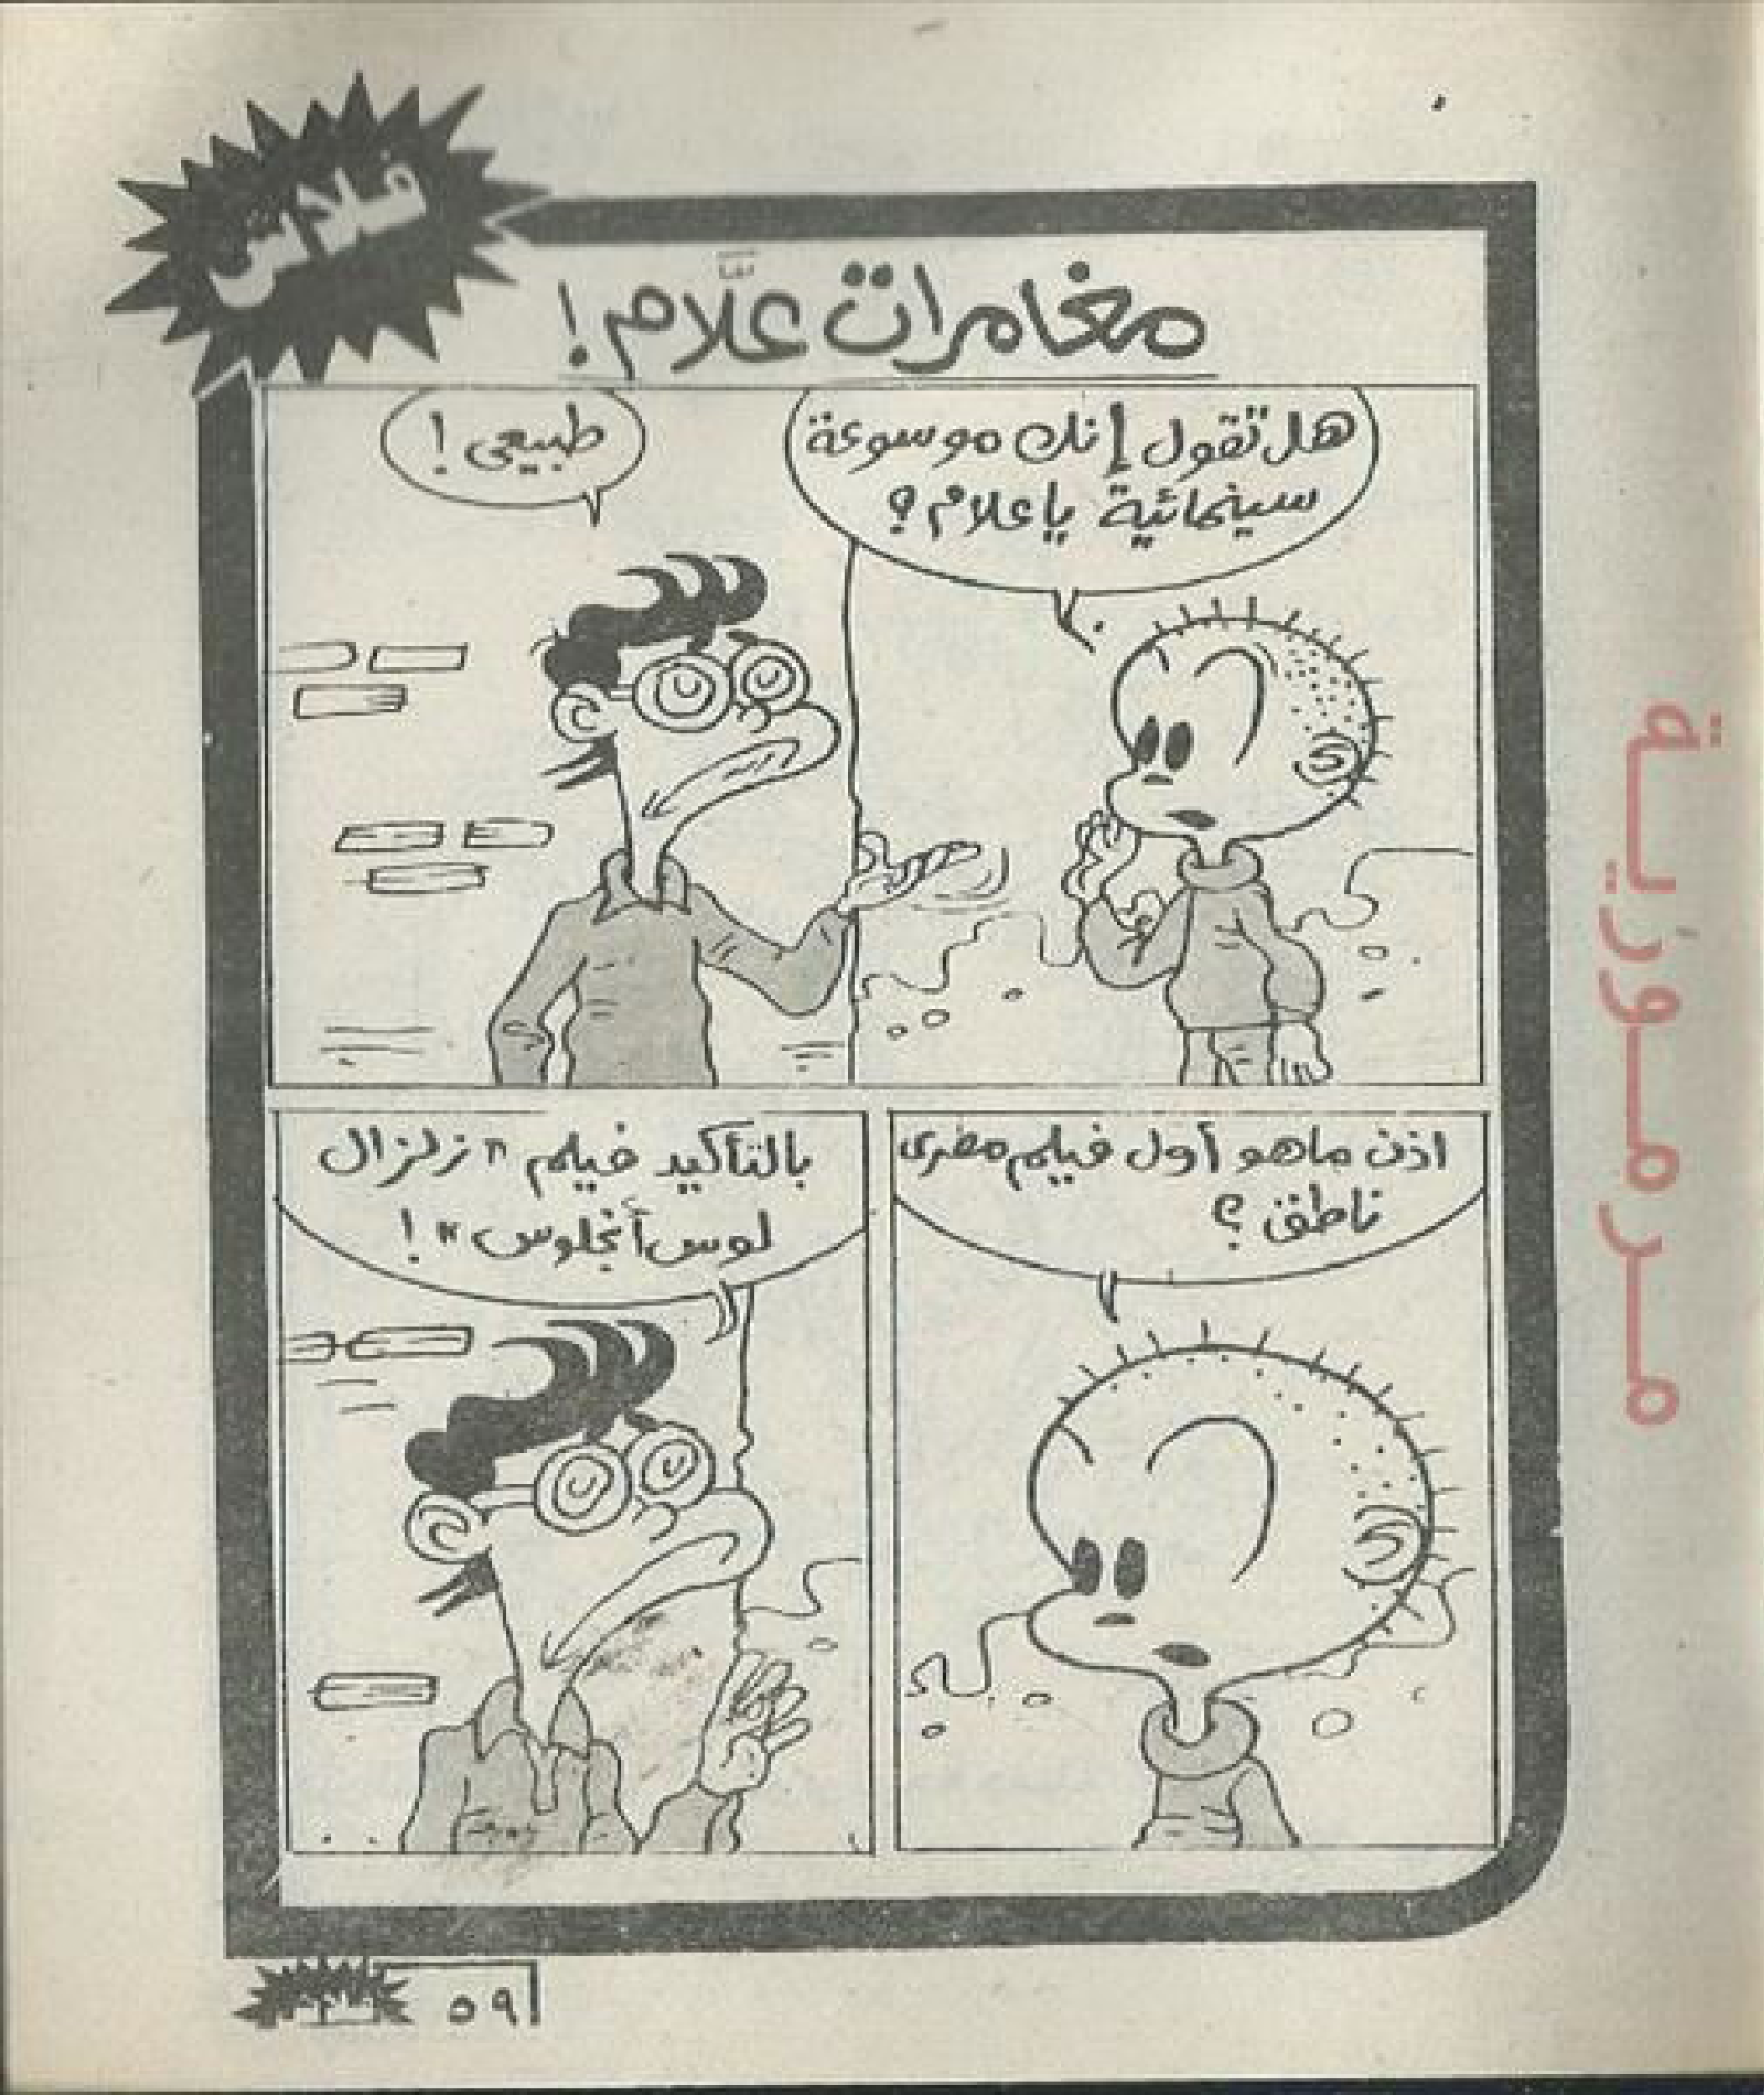 فلاش
مغامرات علَّام!
هل تقول إنك موسوعة
سينمائية ياعلام؟
طبيعى!
اذن ماهو أول فيلم مصرى
ناطق؟
بالتأكيد فيلم "زلزال
لوس أنجلوس"!
مرموزية
٥٩